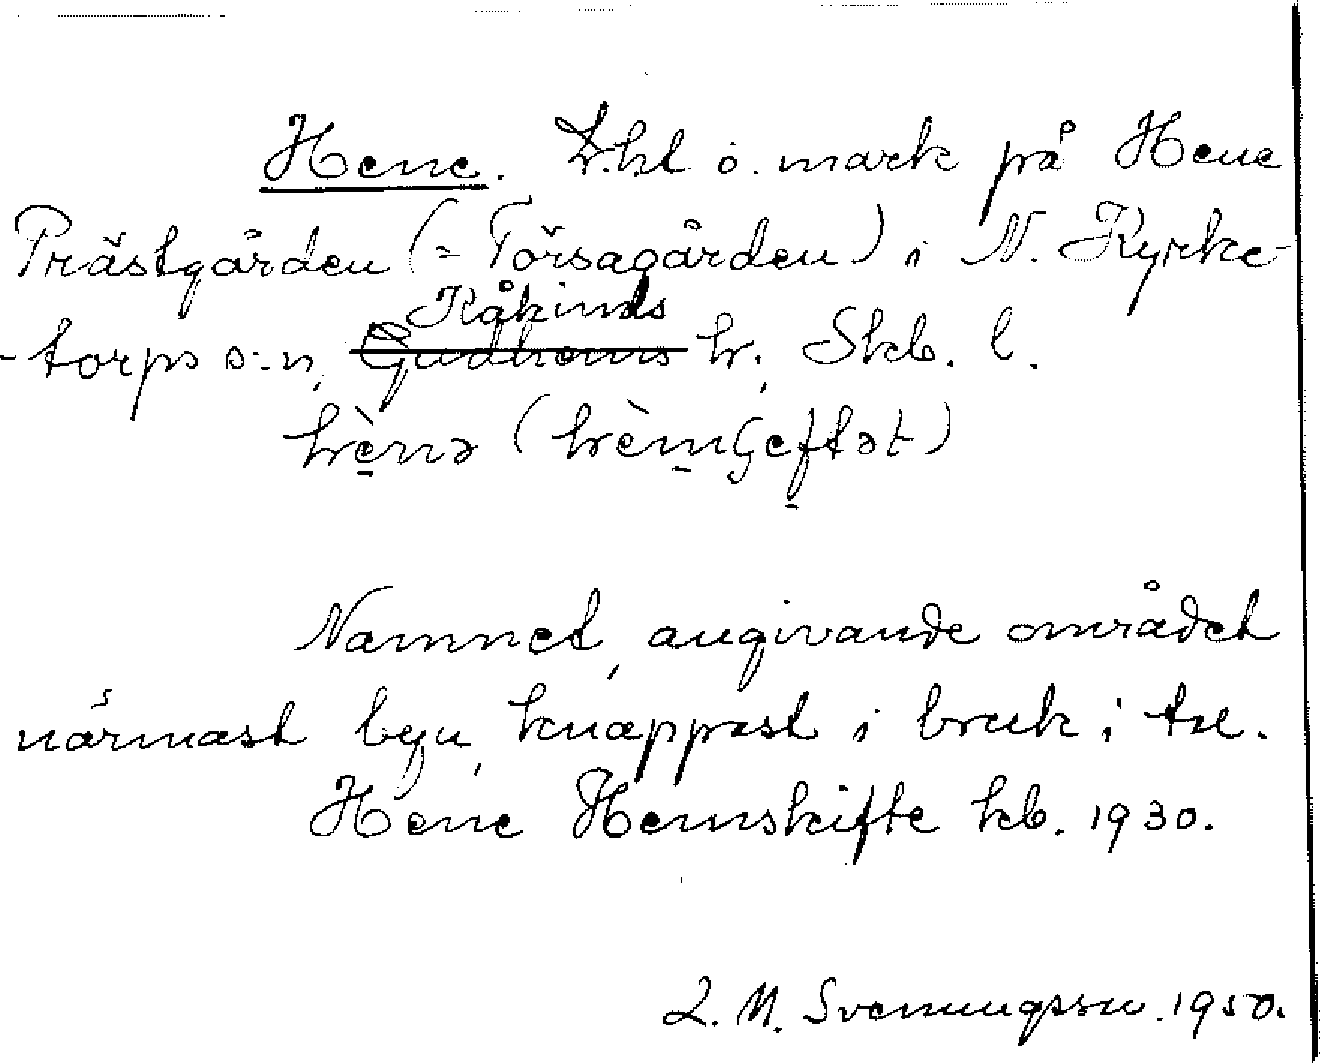 Hene. D.hl o. mark på Hene
Prästgården (= Torsagården) i N. Kyrke-
Kåkinds
-torps s:n, Gudhems hr, Skb. l.
hènə (hèmʃeftət)
Namnet, angivande området
närmast byn, knappast i bruk i tal.
Hene Hemskifte kb. 1930.
L. M. Svenungsson. 1950.